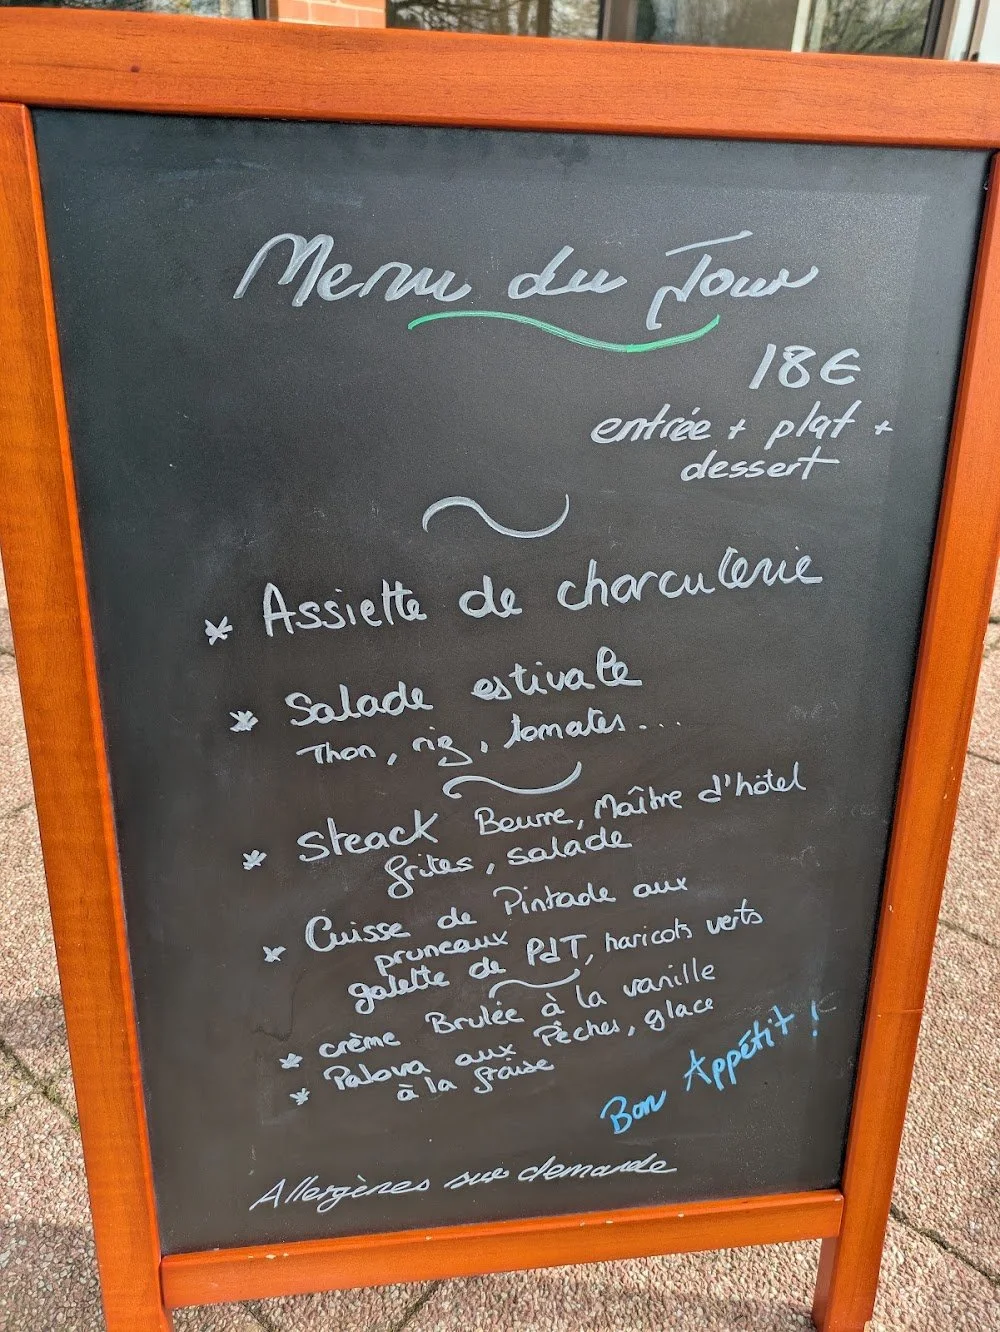 Menu du Jour
18€
entrée + plat +
dessert
* Assiette de charcuterie
* Salade estivale
Thon, riz, tomates...
* Steack Beurre, Maître d'hôtel
frites, salade
* Cuisse de Pintade aux
pruneaux
galette de PdT, haricots verts
* crème Brulée à la vanille
* Palova aux Pêches, glace
à la fraise
Bon Appétit !
Allergènes sur demande